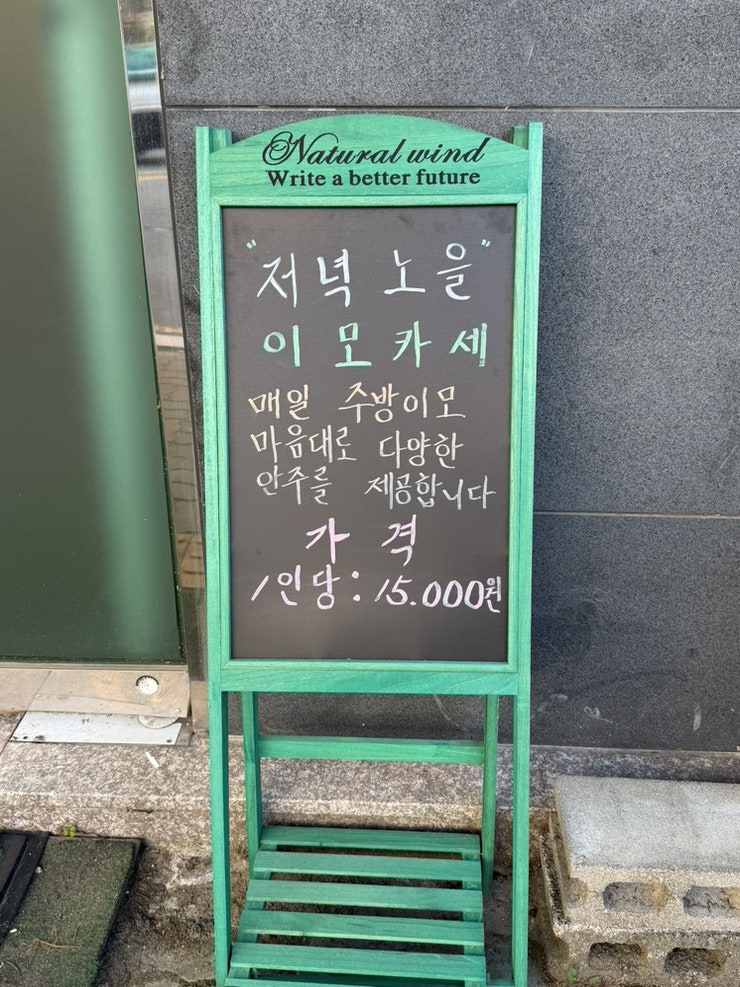 Natural wind
Write a better future
"저녁 노을"
이모카세
매일 주방이모
마음대로 다양한
안주를 제공합니다
가격
1인당: 15.000원